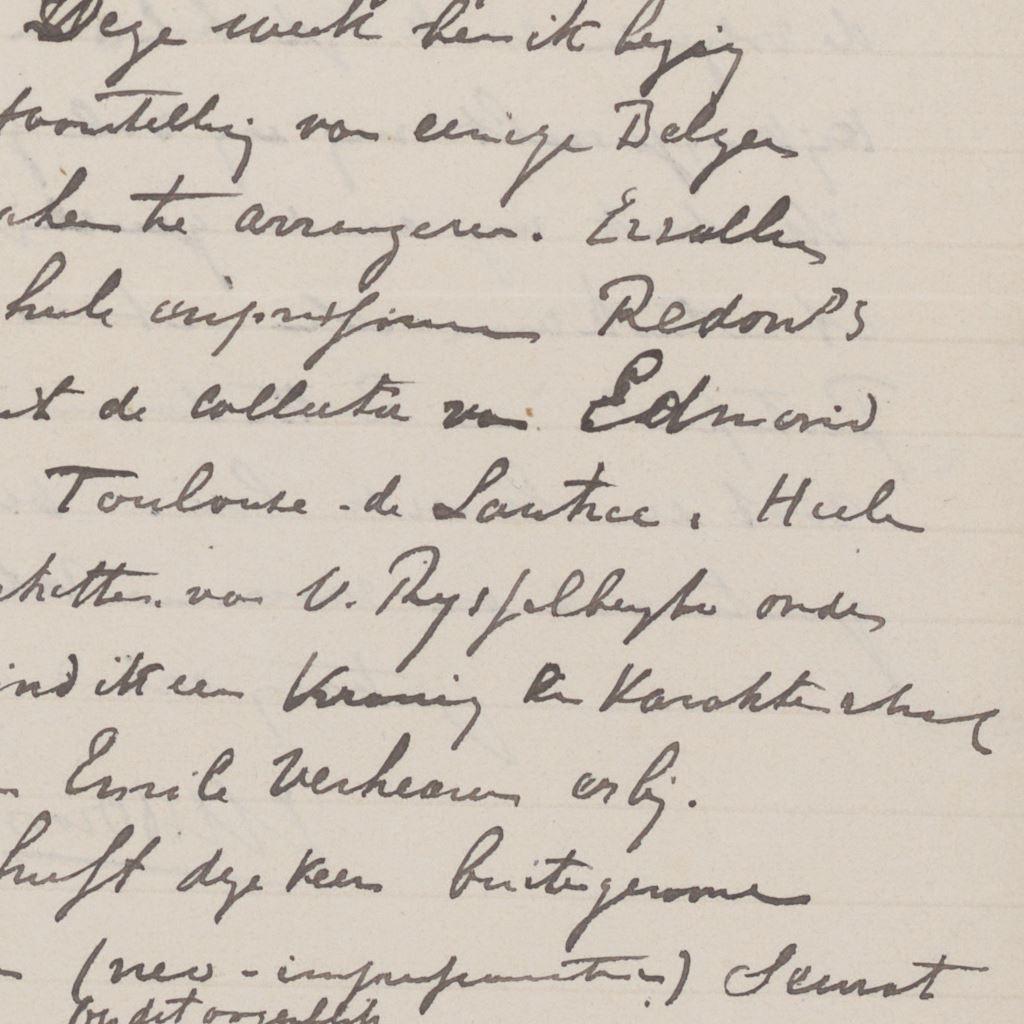 Deze week ben ik bezig
tentoonstelling van eenige Belgen
te arrangeeren. Er zullen
heele Redon's
uit de collectie van Edmond
Toulouse-de Lautrec. Heele
schetsen van V. Rysselberghe onder
vind ik een kranig en karaktervol
Emile Verhaeren erbij.
heeft deze keer buitengewone
(neo-impressionisten) Seurat
Op dit oogenblik